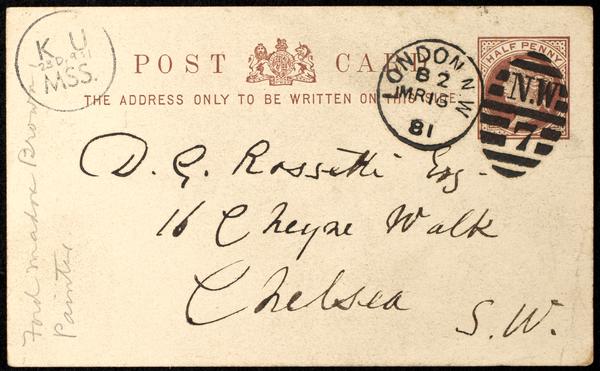 K U
MSS.
POST CARD
THE ADDRESS ONLY TO BE WRITTEN ON THIS SIDE
HALF PENNY
LONDON N.W
B 2
MR 15
81
N.W
7
D. G. Rossetti Esq.
16 Cheyne Walk
Chelsea
S.W.
Ford Madox Brown
Painter